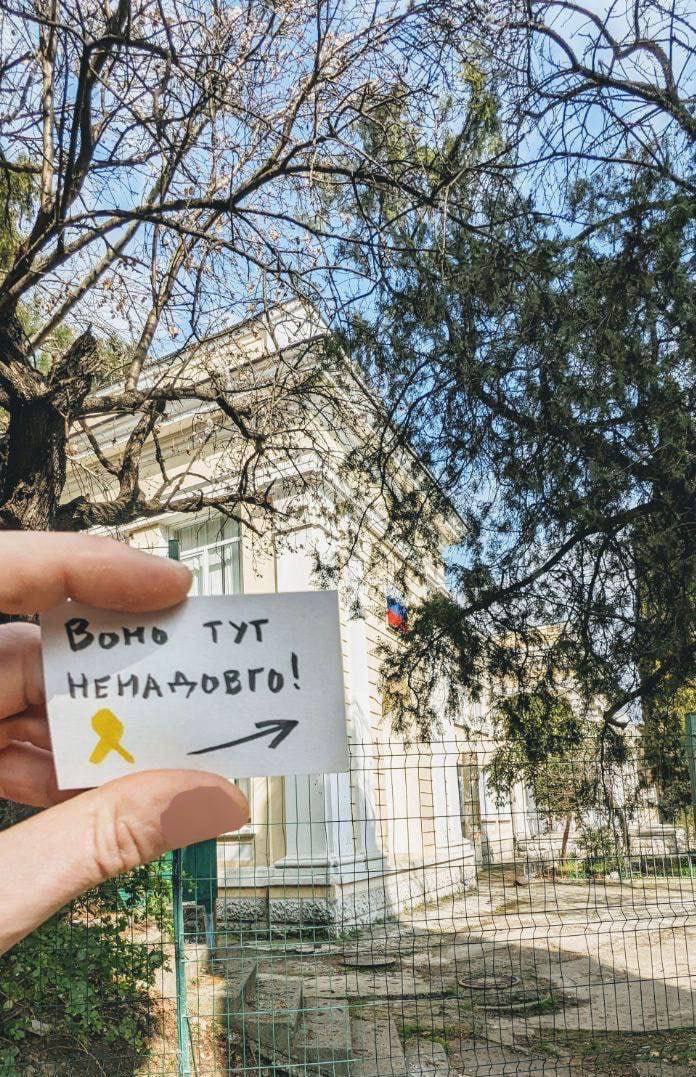 Воно тут
ненадовго!